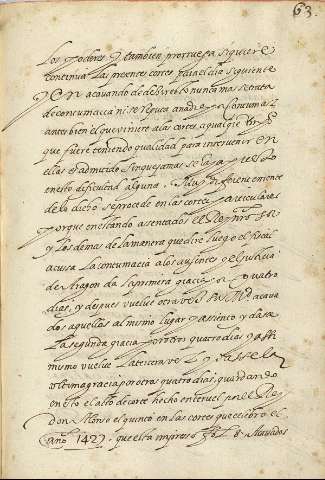 63.
Los Poderes Y tambien prorruega si quiere
continua las presentes cortes para el dia siguiente
Y En acavando de decir esto nunca mas se trata
de contumacia ni se reputa a nadie por contumaz
antes bien el que viniere a las cortes aqualquier
que fuere teniendo qualidad para intervenir en
ellas es admitido sin que Jamas se le aya puesto
en esto dificultad alguna. Muy diferentemente
de lo dicho se procede en las cortes particulares
porque en estando assentados el Rey nro Sr
y los demas de la manera que dixe luego el fiscal
acusa la contumacia a los ausentes y el Justicia
de Aragon da la primera gracia por quatro
dias, y despues vuelve otra vez su Md acava
dos aquellos al mismo lugar y assiento y da la
la segunda gracia por otros quatro dias y assi
mismo vuelve la tercera vez y dasse la
ultima gracia por otros quatro dias, guardando
en esto el acto de corte hecho en teruel por el Rey
don Alonso el quinto en las cortes que celebro el
año 1427. que esta impreso fo. L 8. Acavados